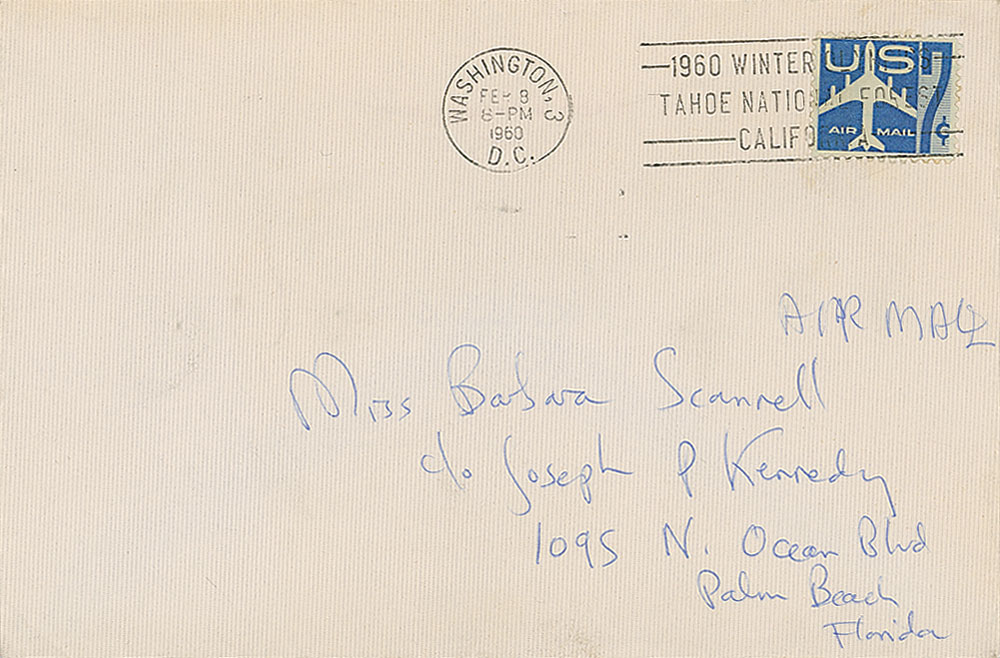 WASHINGTON, 3
FEB 8
6-PM
1960
D.C.
1960 WINTER
TAHOE NATIONAL FOREST
CALIFO
US
7¢
AIR MAIL
AIR MAIL
Miss Barbara Scannell
c/o Joseph P Kennedy
1095 N. Ocean Blvd
Palm Beach
Florida